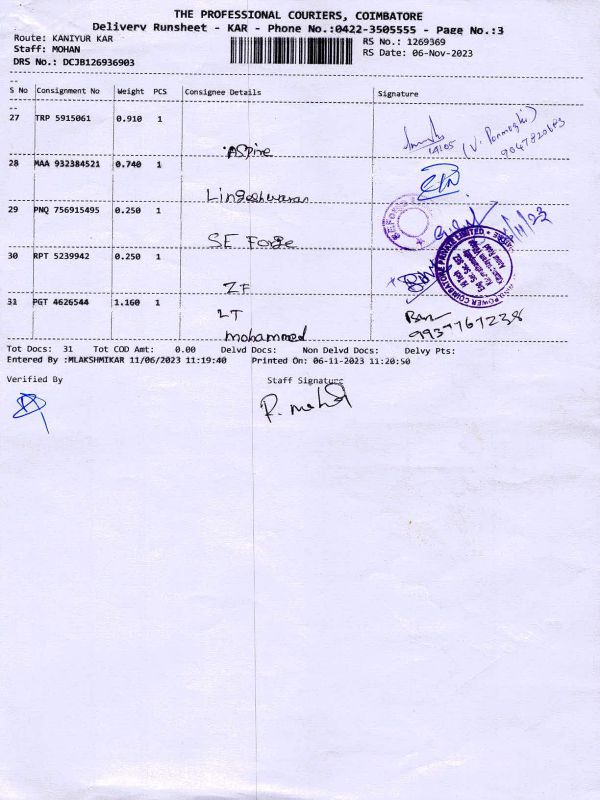 THE PROFESSIONAL COURIERS, COIMBATORE
Delivery Runsheet - KAR - Phone No.:0422-3505555 - Page No.:3
Route: KANIYUR KAR
RS No.: 1269369
Staff: MOHAN
RS Date: 06-Nov-2023
DRS No.: DCJB126936903
S No Consignment No Weight PCS Consignee Details Signature
27 TRP 5915061 0.910 1
Aspire
14105 (V. Ponmozhi)
9047820693
28 MAA 932384521 0.740 1
Lingeshwaran
29 PNQ 756915495 0.250 1
SE Forge
30 RPT 5239942 0.250 1
ZF
31 PGT 4626544 1.160 1
LT
mohammed
9937767238
Tot Docs: 31 Tot COD Amt: 0.00 Delvd Docs: Non Delvd Docs: Delvy Pts:
Entered By :MLAKSHMIKAR 11/06/2023 11:19:40 Printed On: 06-11-2023 11:20:50
Verified By Staff Signature